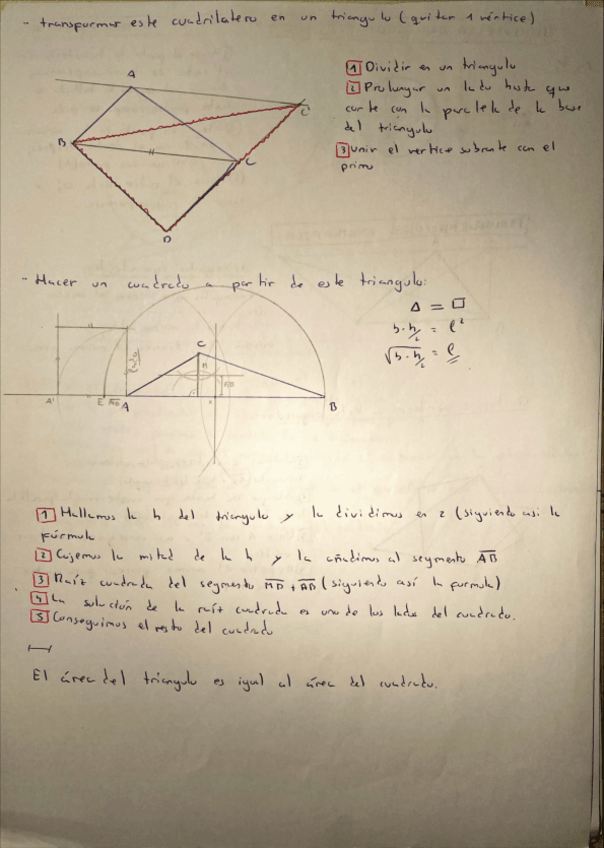 - transformar este cuadrilatero en un triangulo (quitar 1 vértice)
A
B
C
C'
D
1 Dividir en un triangulo
2 Prolongar un lado hasta que
corte con la paralela de la base
del triangulo
3 unir el vertice sobrante con el
primo
- Hacer un cuadrado a partir de este triangulo:
Δ = □
b·h/2 = l²
√b·h/2 = l
C
A' E A B
1 Hallamos la h del triangulo y la dividimos en 2 (siguiendo asi la
fórmula
2 Cojemos la mitad de la h y la añadimos al segmento AB
3 Raíz cuadrada del segmento MD + AB (siguiendo así la formula)
4 La solución de la raíz cuadrada es uno de los lados del cuadrado.
5 Conseguimos el resto del cuadrado
El área del triangulo es igual al área del cuadrado.